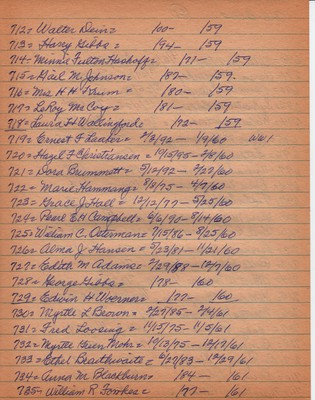 712= Walter Dein= 100- /59
713= Harry Gibbs= 94- /59
714= Minnie Fulton Haskoff= 71- /59
715= Gail M. Johnson= 87- /59.
716= Mrs H H Krum= 80- /59
717= LeRoy McCoy= 81- /59
718= Laura H Wallingford= 72- /59
719= Ernest F Lanker= 2/3/92- 1/9/60 WW1
720= Hazel F Christiansen= 10/5/95- 2/8/60
721= Dora Brummett= 5/12/92- 2/27/60
722= Marie Hammang= 8/8/75- 4/7/60
723= Grace J Hall= 12/12/77- 5/25/60
724= Pearl E H Campbell= 6/6/90- 8/14/60
725= William C. Osterman= 7/15/86- 8/25/60
726= Alma J Hansen= 5/23/81- 11/21/60
727= Edith M Adams= 2/29/88- 12/7/60
728= George Gibbs= 78- 160
729= Edwin H Woerner= 77- 160
730= Myrtle L Brown= 2/27/85- 2/4/61
731= Fred Loosing= 11/15/75- 11/5/61
732= Myrtle Gunn Mohr= 10/13/75- 12/17/61
733= Ethel Beathwaite= 6/27/83- 12/29/61
734= Anna M. Blackburn= 184- 161
735- William R Fowkes= 177- 161